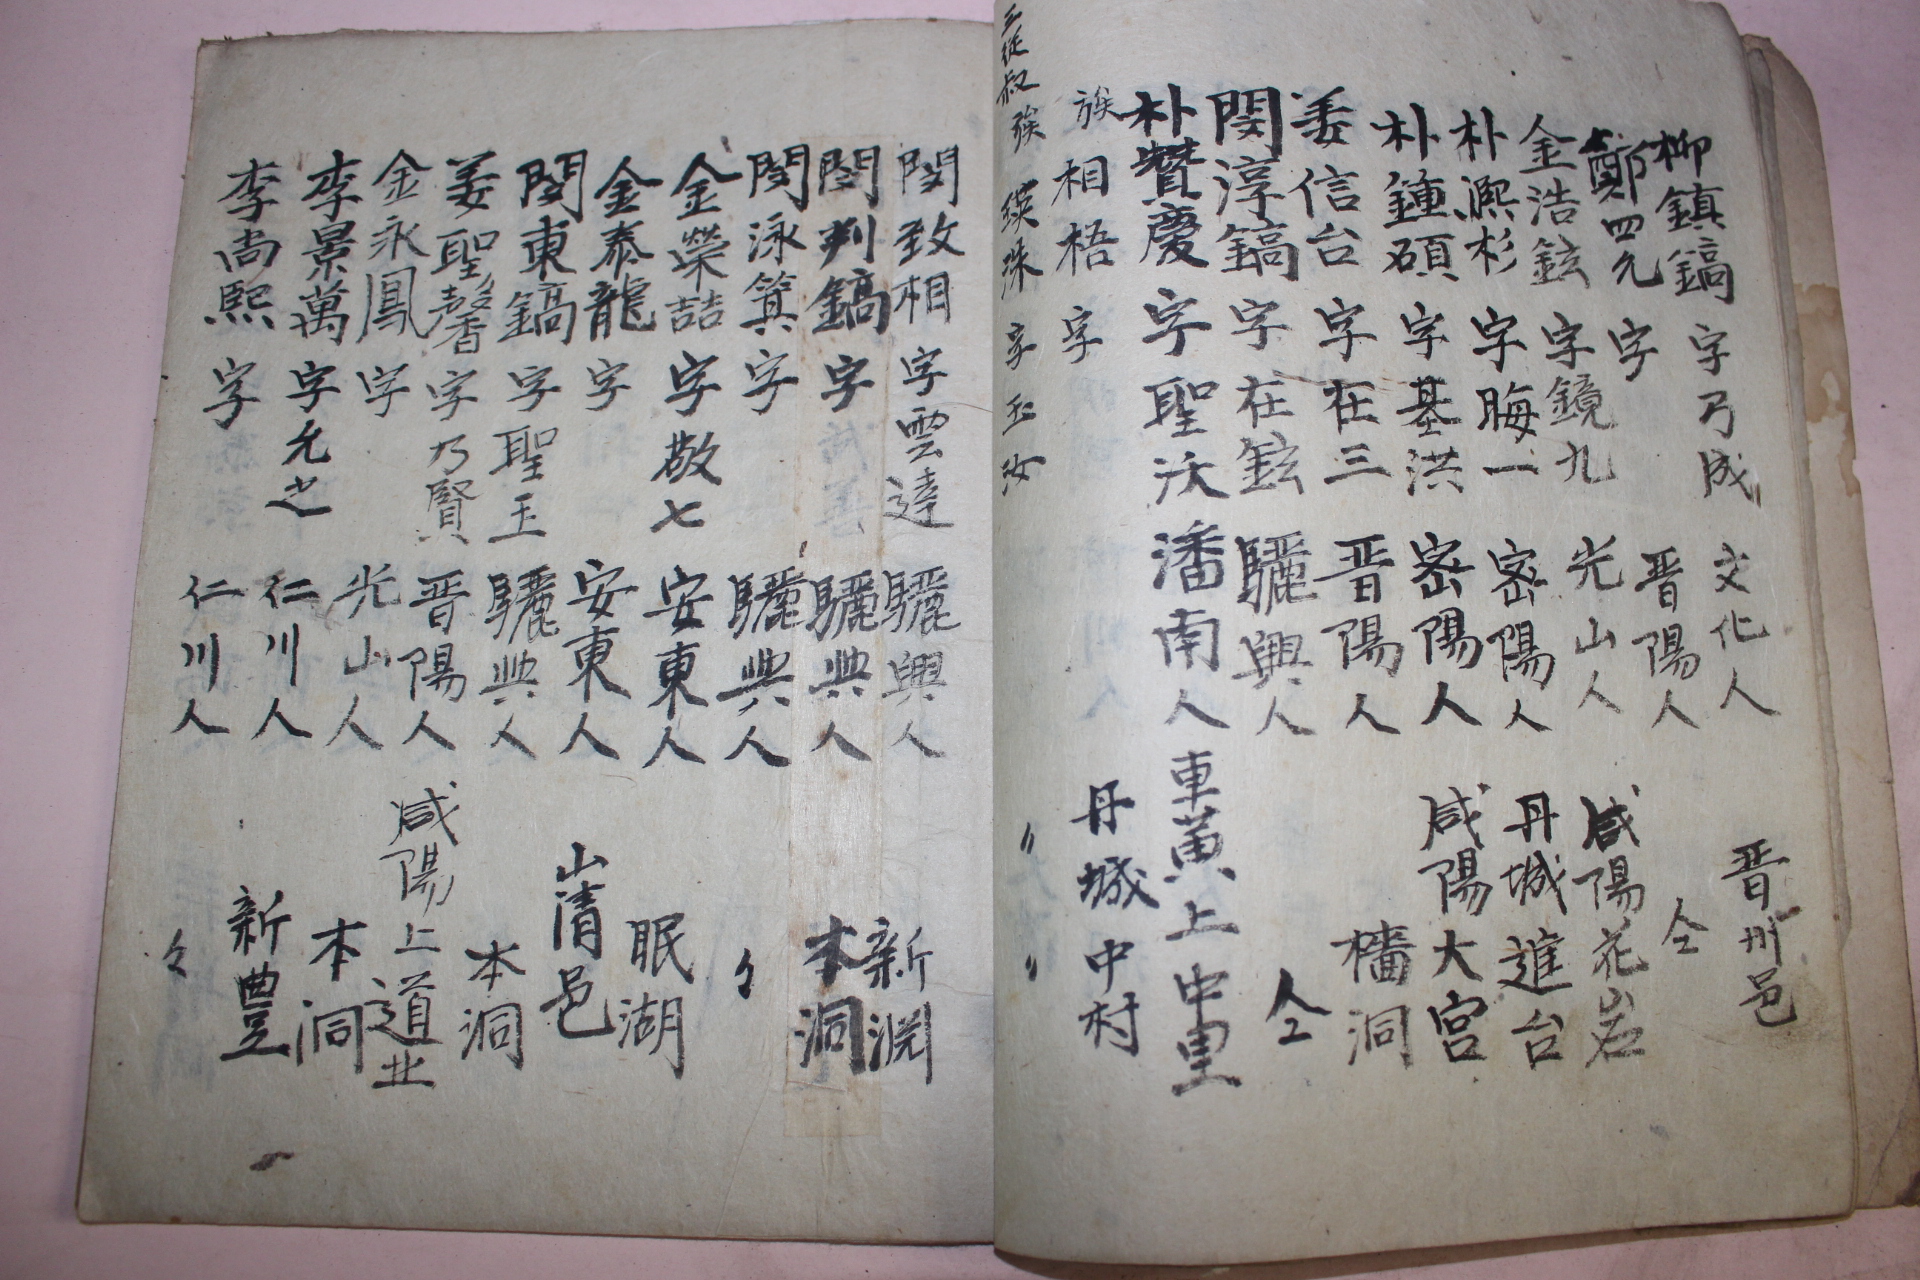 柳鎮鎬 字乃成 文化人 晋州邑
鄭四允 字 晋陽人 仝
金浩鉉 字鏡九 光山人 咸陽花岩
朴熙杉 字晦一 密陽人 丹城進台
朴鍾碩 字基洪 密陽人 咸陽大宮
姜信台 字在三 晋陽人 檣洞
閔淳鎬 字在鉉 驪興人 仝
朴贊慶 字聖沃 潘南人 車黄上中里
族 相梧 字 丹城中村
三從叔 族 瑛珠 字玉汝 〃 〃
閔致相 字雲逵 驪興人 新淵
閔判鎬 字 驪興人 本洞
閔泳箕 字 驪興人 々
金榮喆 字敬七 安東人 眠湖
金泰龍 字 安東人 山清邑
閔東鎬 字聖玉 驪興人 本洞
姜聖馨 字乃賢 晋陽人 咸陽上道北
金永鳳 字 光山人 本洞
李景萬 字允之 仁川人 新豊
李尚熙 字 仁川人 々